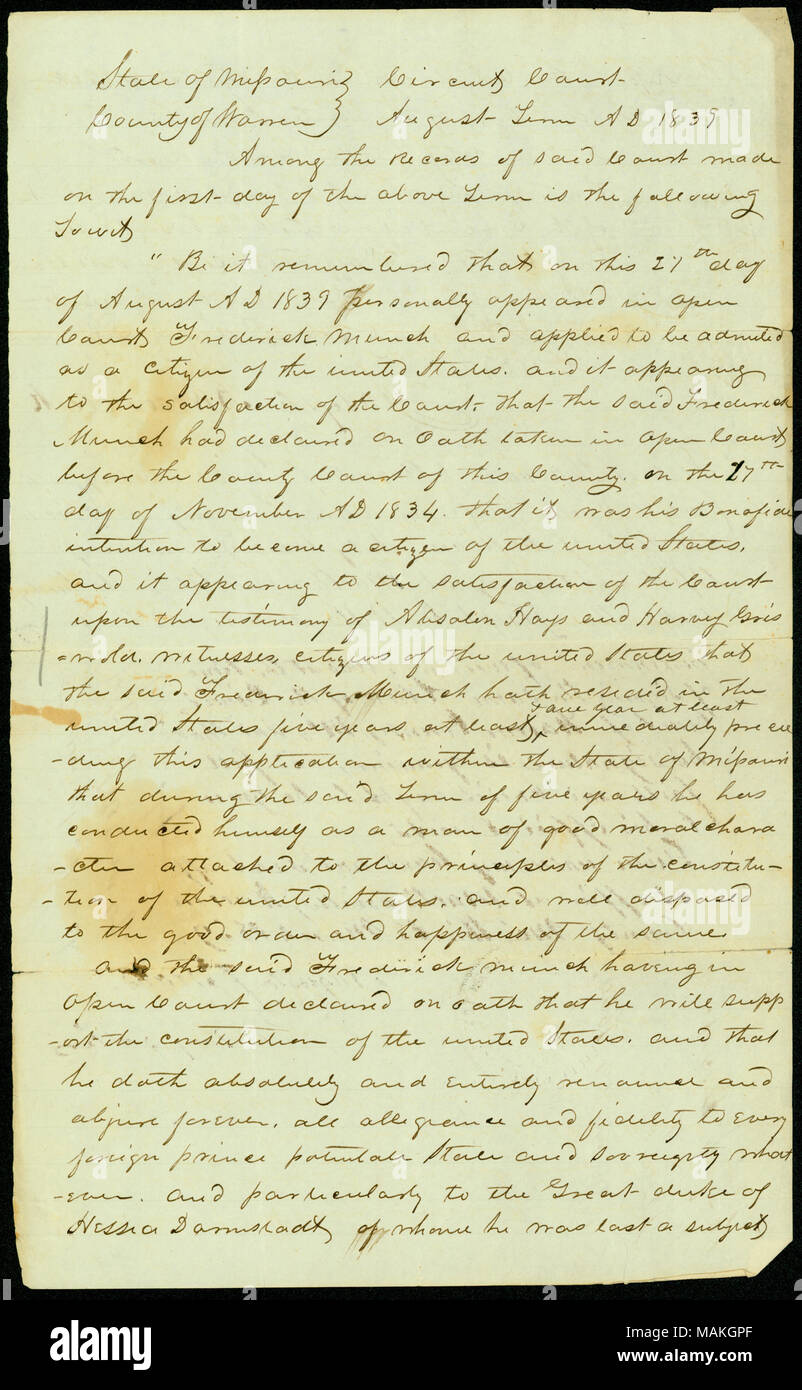 State of Missouri } Circuit Court
County of Warren } August Term AD 1839
Among the Records of said Court made
on the first day of the above Term is the following
Towit
" Be it remembered that on this 27th day
of August AD 1839 personally appeared in open
Court Frederick Munch and applied to be admited
as a Citizen of the united States. and it appearing
to the satisfaction of the Court, that the said Frederick
Munch had declared on Oath taken in open Court
before the County Court of this County. on the 17th
day of November AD 1834. that it was his Bonafide
intention to become a citizen of the united States.
and it appearing to the satisfaction of the Court
upon the testimony of Absalon Hays and Harvey Gris
=wold. witnesses, citizens of the united States that
the said Frederick Munch hath resided in the
+ one year at least
united States five years at least, ^ immediately prece
-ding this application within the State of Missouri
that during the said Term of five years he has
conducted himself as a man of good moral chara
-cter attached to the principles of the constitu-
-tion of the united States. and well disposed
to the good order and happiness of the same
and the said Frederick Munch having in
open Court declared on oath that he will supp
-ort the constitution of the united States. and that
he doth absolutely and Entirely renounce and
abjure forever. all allegiance and fidelity to Every
foreign prince potentate State and Sovreignty what
-ever. and particularly to the Great duke of
Hessia Darmstadt of whome he was last a subject
alamy
alamy
Image ID: MAKGPF
www.alamy.com